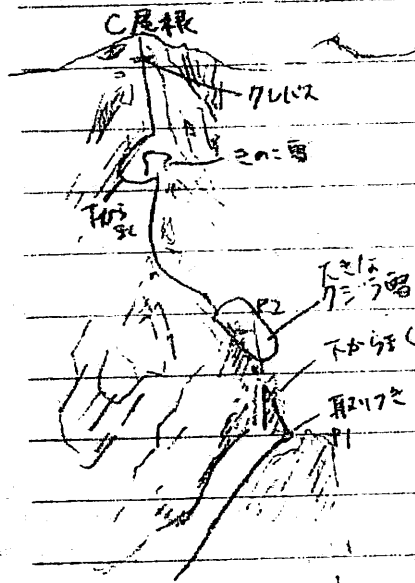 C尾根
クレバス
きのこ雪
下から
まく
大きな
クジラ雪
P2
下からまく
取りつき
P1